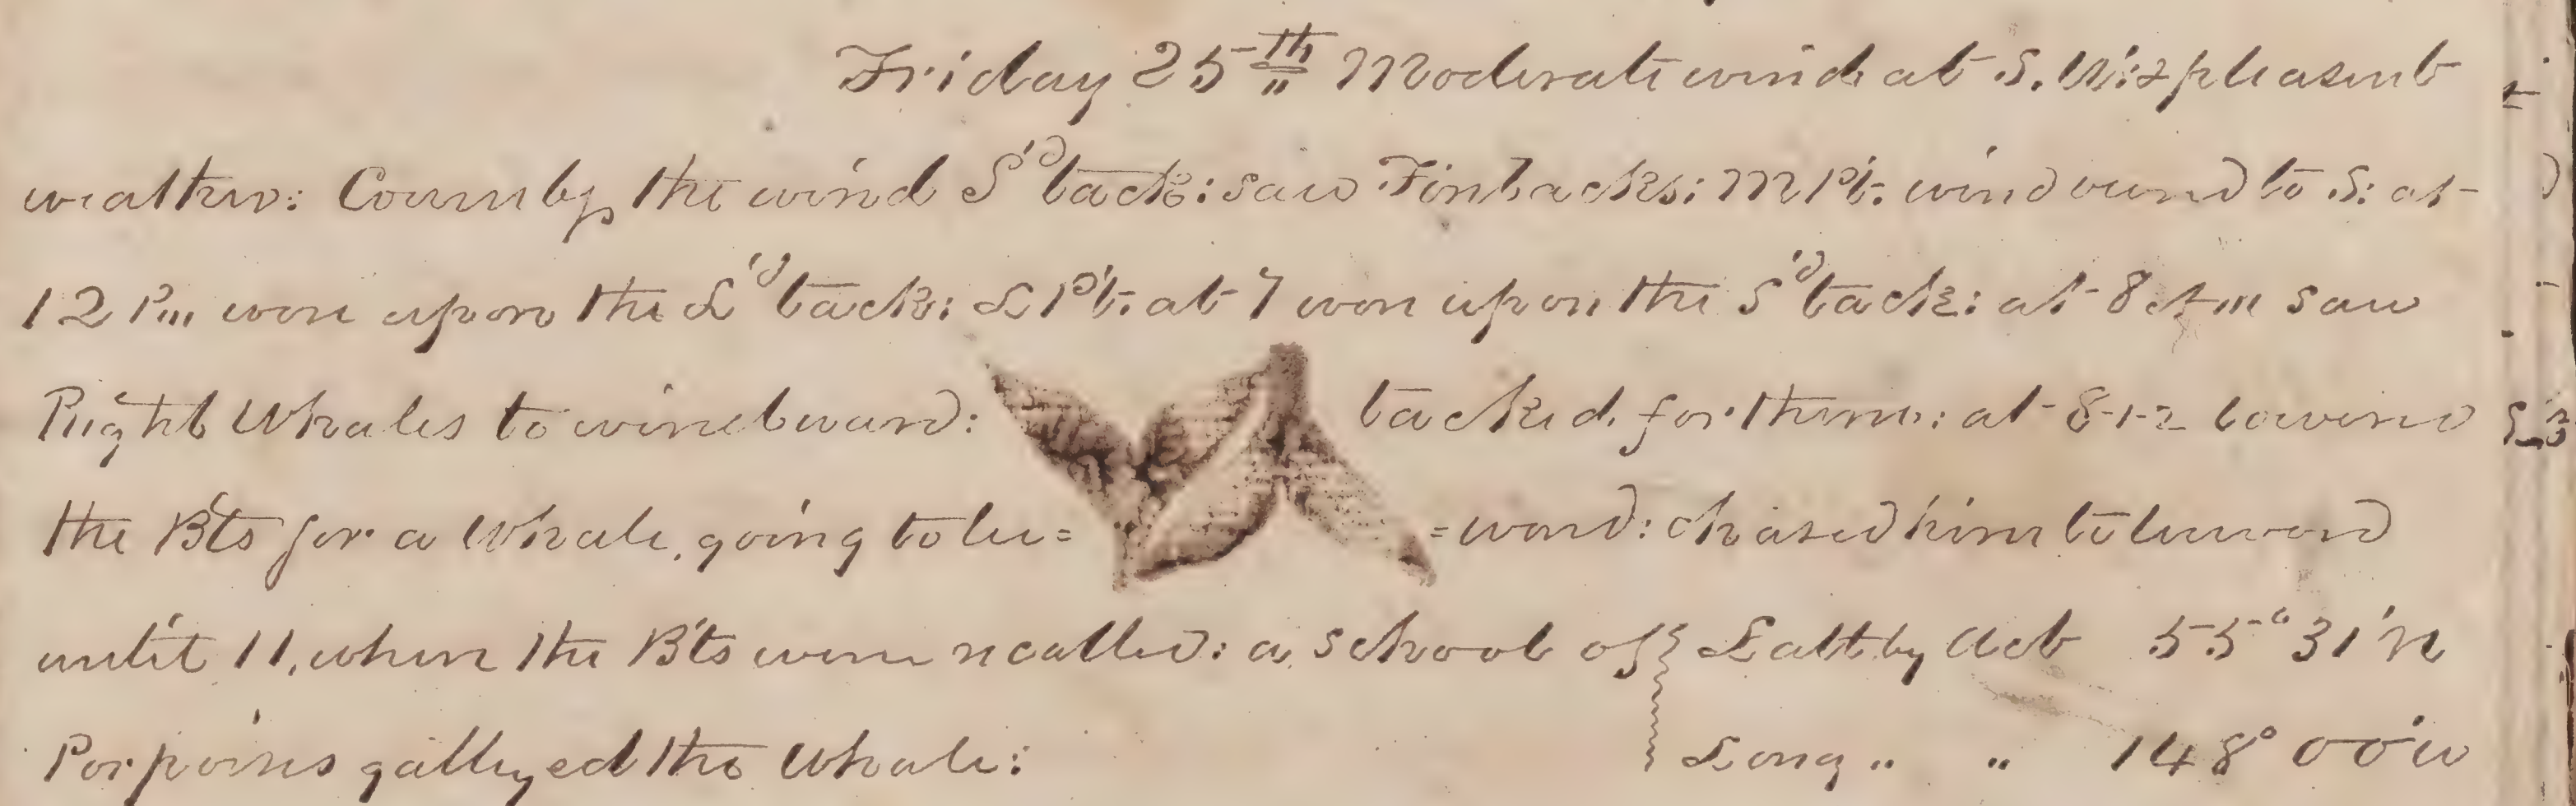 Friday 25th Moderate wind at S. W: & pleasent
weather: Course by the wind S'd tack: saw Finbacks: M Pt. wind vered to S: at
12 Pm wore upon the L'd tack: L Pt. at 7 wore upon the S'd tack: at 8 Am saw
Right Whales to windward: tacked for them: at 8-1-2 lowered
the Bts for a Whale, going to lee= =ward: chased him to leeward
until 11, when the Bts were recalled: a school of Latt by Acb 55° 31' N
Porpoises gallyed the Whale: Long " " 148° 00' W